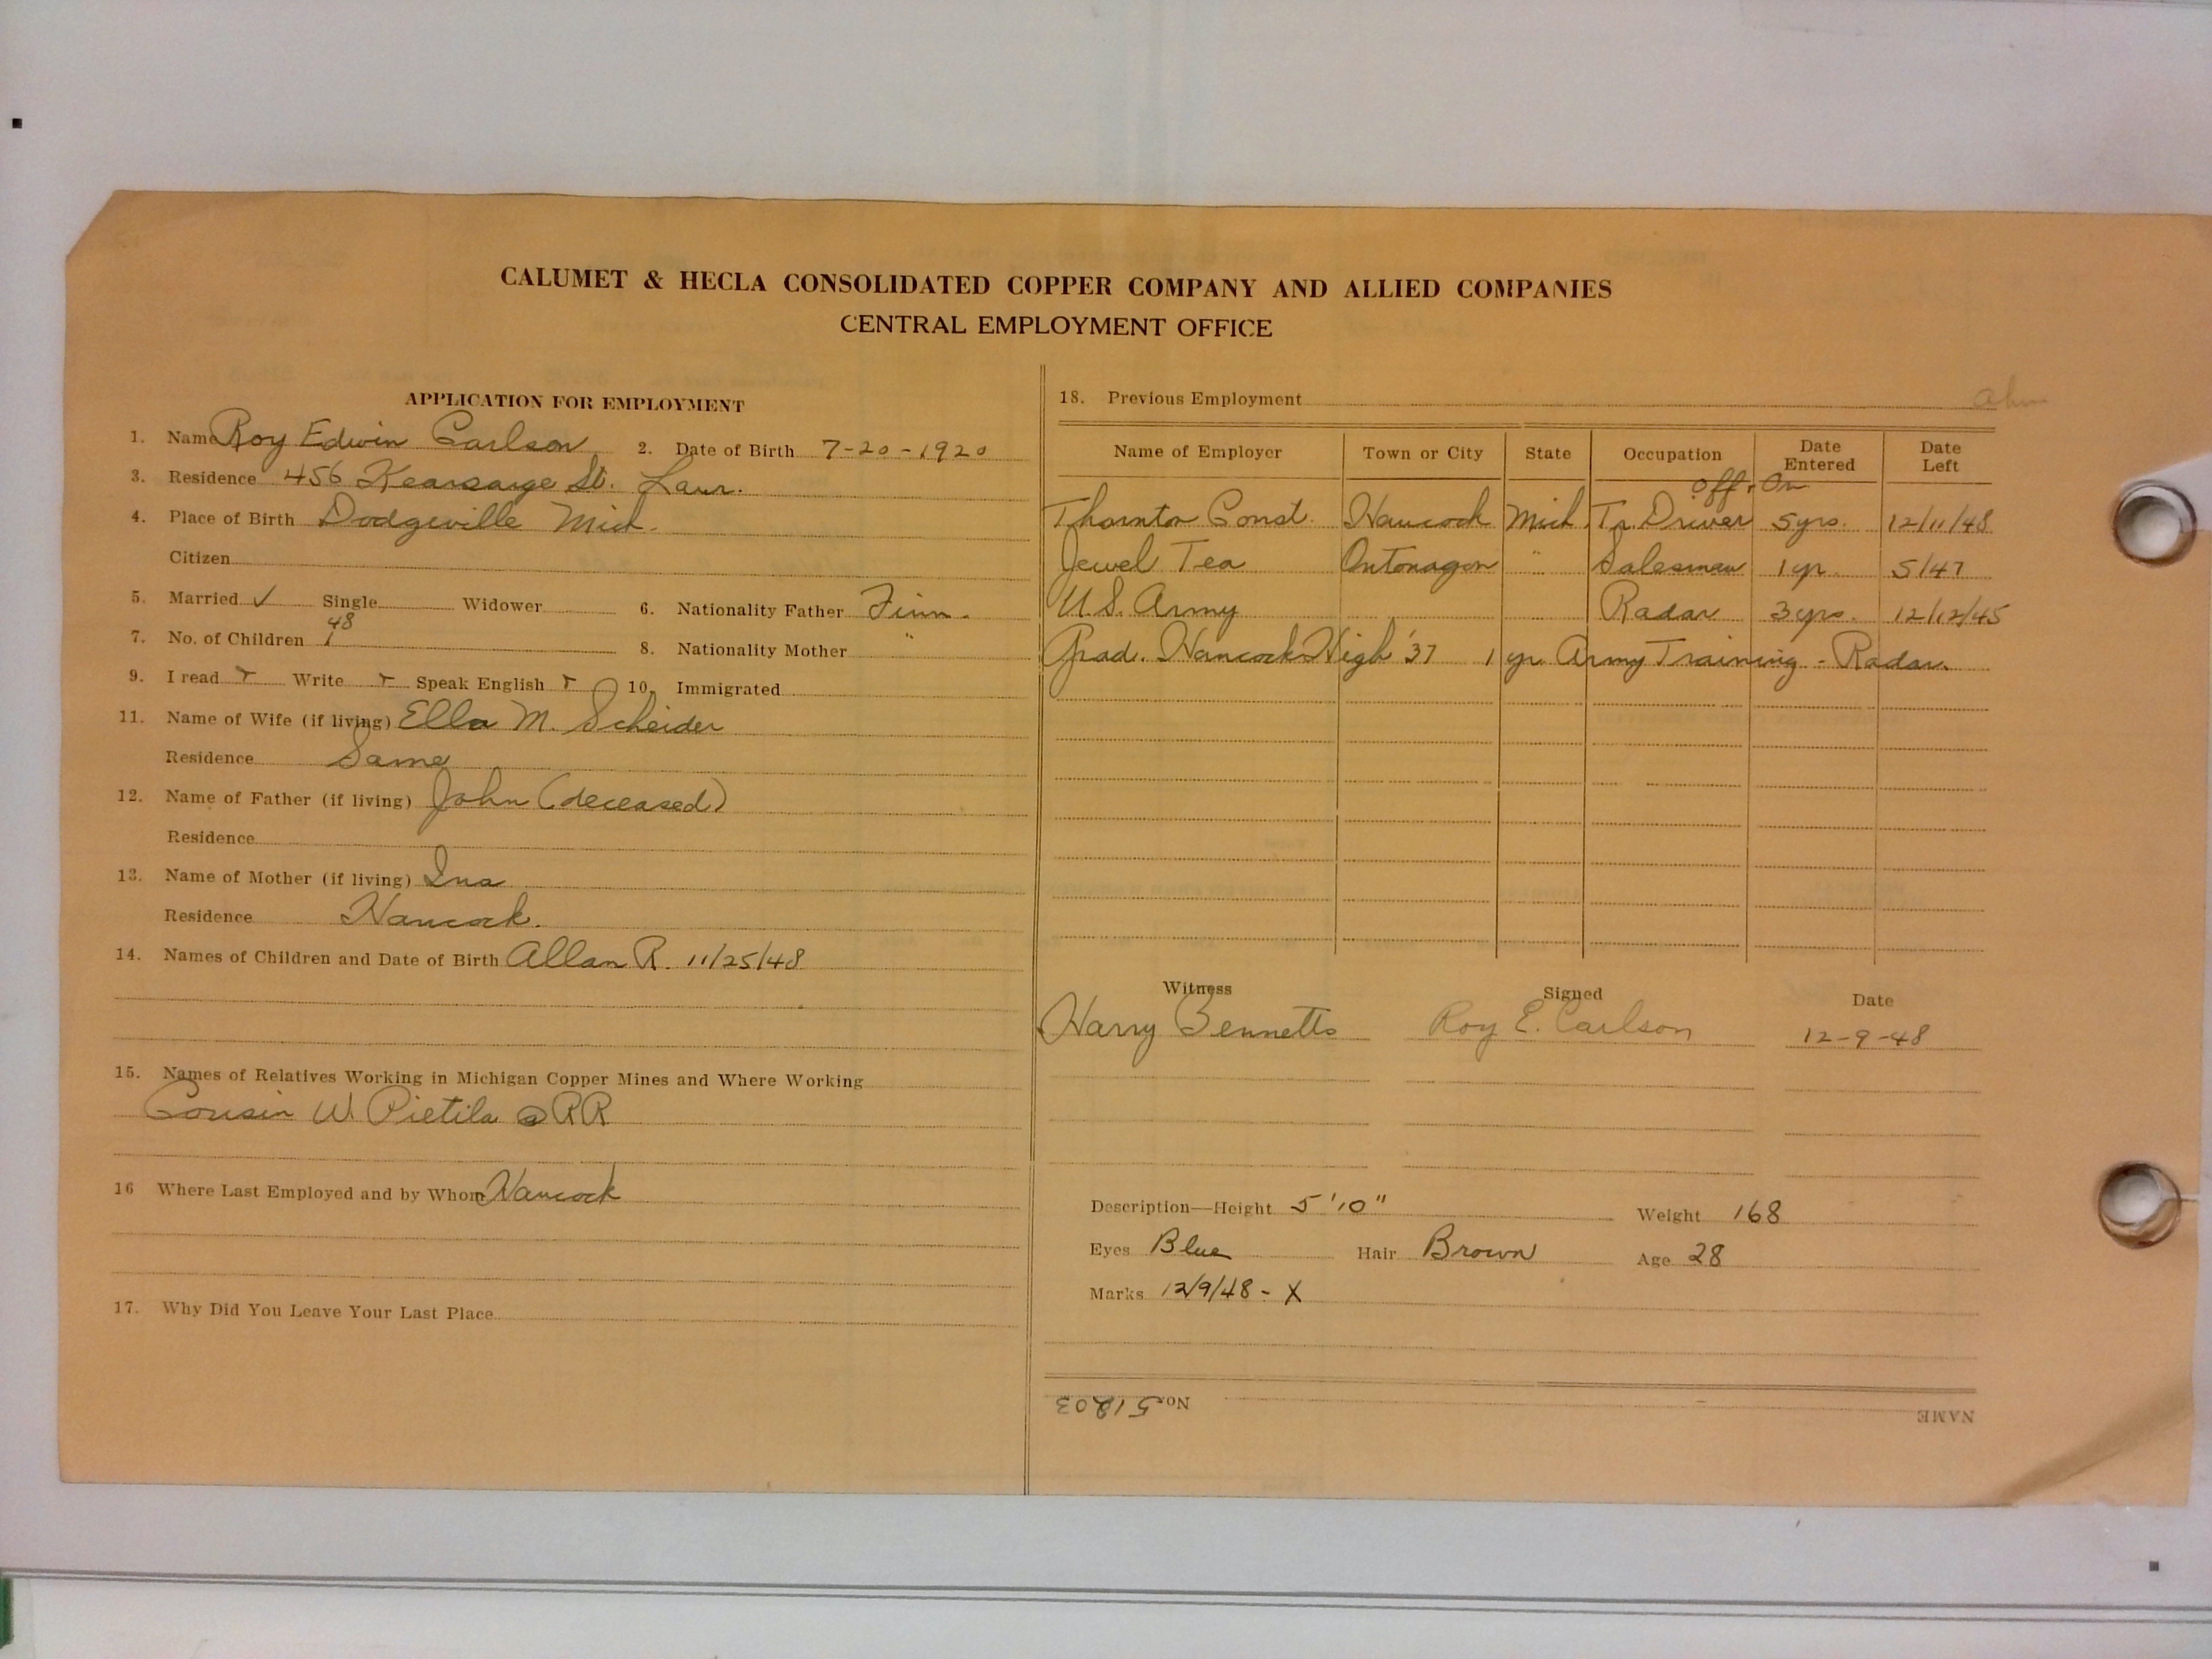 CALUMET & HECLA CONSOLIDATED COPPER COMPANY AND ALLIED COMPANIES
CENTRAL EMPLOYMENT OFFICE
APPLICATION FOR EMPLOYMENT
1. Name Roy Edwin Carlson 2. Date of Birth 7-20-1920
3. Residence 456 Kearsarge St. Laur.
4. Place of Birth Dodgeville Mich.
Citizen
5. Married ✓ Single Widower 6. Nationality Father Finn.
48
7. No. of Children 1 8. Nationality Mother "
9. I read Write Speak English 10. Immigrated
11. Name of Wife (if living) Ella M. Scheider
Residence Same
12. Name of Father (if living) John (deceased)
Residence
13. Name of Mother (if living) Ina
Residence Hancock.
14. Names of Children and Date of Birth Allan R. 11/25/48
15. Names of Relatives Working in Michigan Copper Mines and Where Working
Cousin W. Pietila @ RR
16 Where Last Employed and by Whom Hancock
17. Why Did You Leave Your Last Place
18. Previous Employment
Name of Employer Town or City State Occupation Date Entered Date Left
off & On
Thornton Const. Hancock Mich. Tr. Driver 5 yrs. 12/11/48
Jewel Tea Ontonagon " Salesman 1 yr. 5/47
U.S. Army Radar 3 yrs. 12/12/45
Grad. Hancock High '37 1 yr. Army Training - Radar.
Witness Signed Date
Harry Bennetts Roy E. Carlson 12-9-48
Description—Height 5'10" Weight 168
Eyes Blue Hair Brown Age 28
Marks 12/9/48 - X
No. 51203
NAME